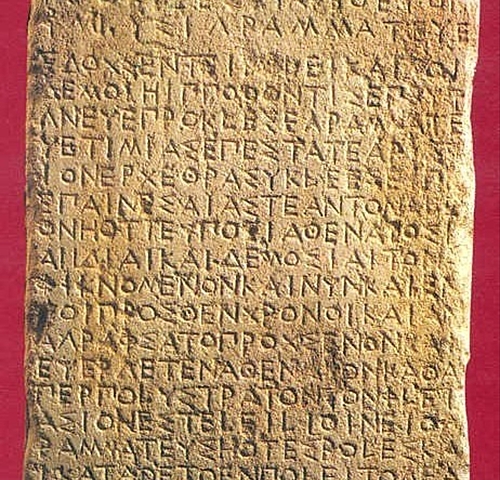 ΕΔΟΧΣΕΝΤΕΙΒΟΛΕΙΚΑΙΤΟΙ
ΔΕΜΟΙΗΙΠΠΟΘΟΝΤΙΣΕΠΡΥΤ
ΑΝΕΥΕΠΡΟΚΛΕΕΣΕΓΡΑΜΜΑΤΕ
ΥΕΤΙΜΙΑΣΕΠΕΣΤΑΤΕΑΡΙΣΤ
ΙΟΝΕΡΧΕΘΡΑΣΥΚΛΕΕΣΕΙΠΕ
ΕΠΑΙΝΕΣΑΙΑΣΤΕΑΝΤΟΝΑΛΕ
ΟΝΗΟΤΙΕΥΠΟΕΙΑΘΕΝΑΙΟΣΚ
ΑΙΙΔΙΑΙΚΑΙΔΕΜΟΣΙΑΙΤΟΝ
ΑΦΙΚΝΟΜΕΝΟΝΚΑΙΝΥΝΚΑΙΕΝ
ΤΟΙΠΡΟΣΘΕΝΧΡΟΝΟΙΚΑΙΑΝ
ΑΓΡΑΦΣΑΤΟΠΡΟΧΣΕΝΟΝΚΑΙ
ΕΥΕΡΓΕΤΕΝΑΘΕΝΑΙΟΝΚΑΘΑ
ΠΕΡΠΟΛΥΣΤΡΑΤΟΝΤΟΝΦΛΕΙ
ΑΣΙΟΝΕΣΤΕΛΕΙΛΙΘΙΝΕΙΟΓ
ΡΑΜΜΑΤΕΥΣΗΟΤΕΣΒΟΛΕΣΚΑ
ΙΚΑΤΑΘΕΤΟΕΝΠΟΛΕΙ